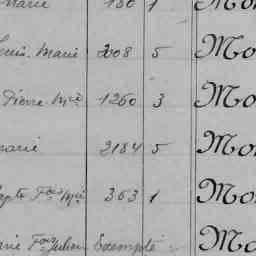 Marie 180 1 Mo
Louis Marie 2008 5 Mo
Pierre Mie 1260 3 Mo
Marie 2184 5 Mo
Bapte Fois Mie 363 1 Mo
Marie Fois Julien Exempté Mo